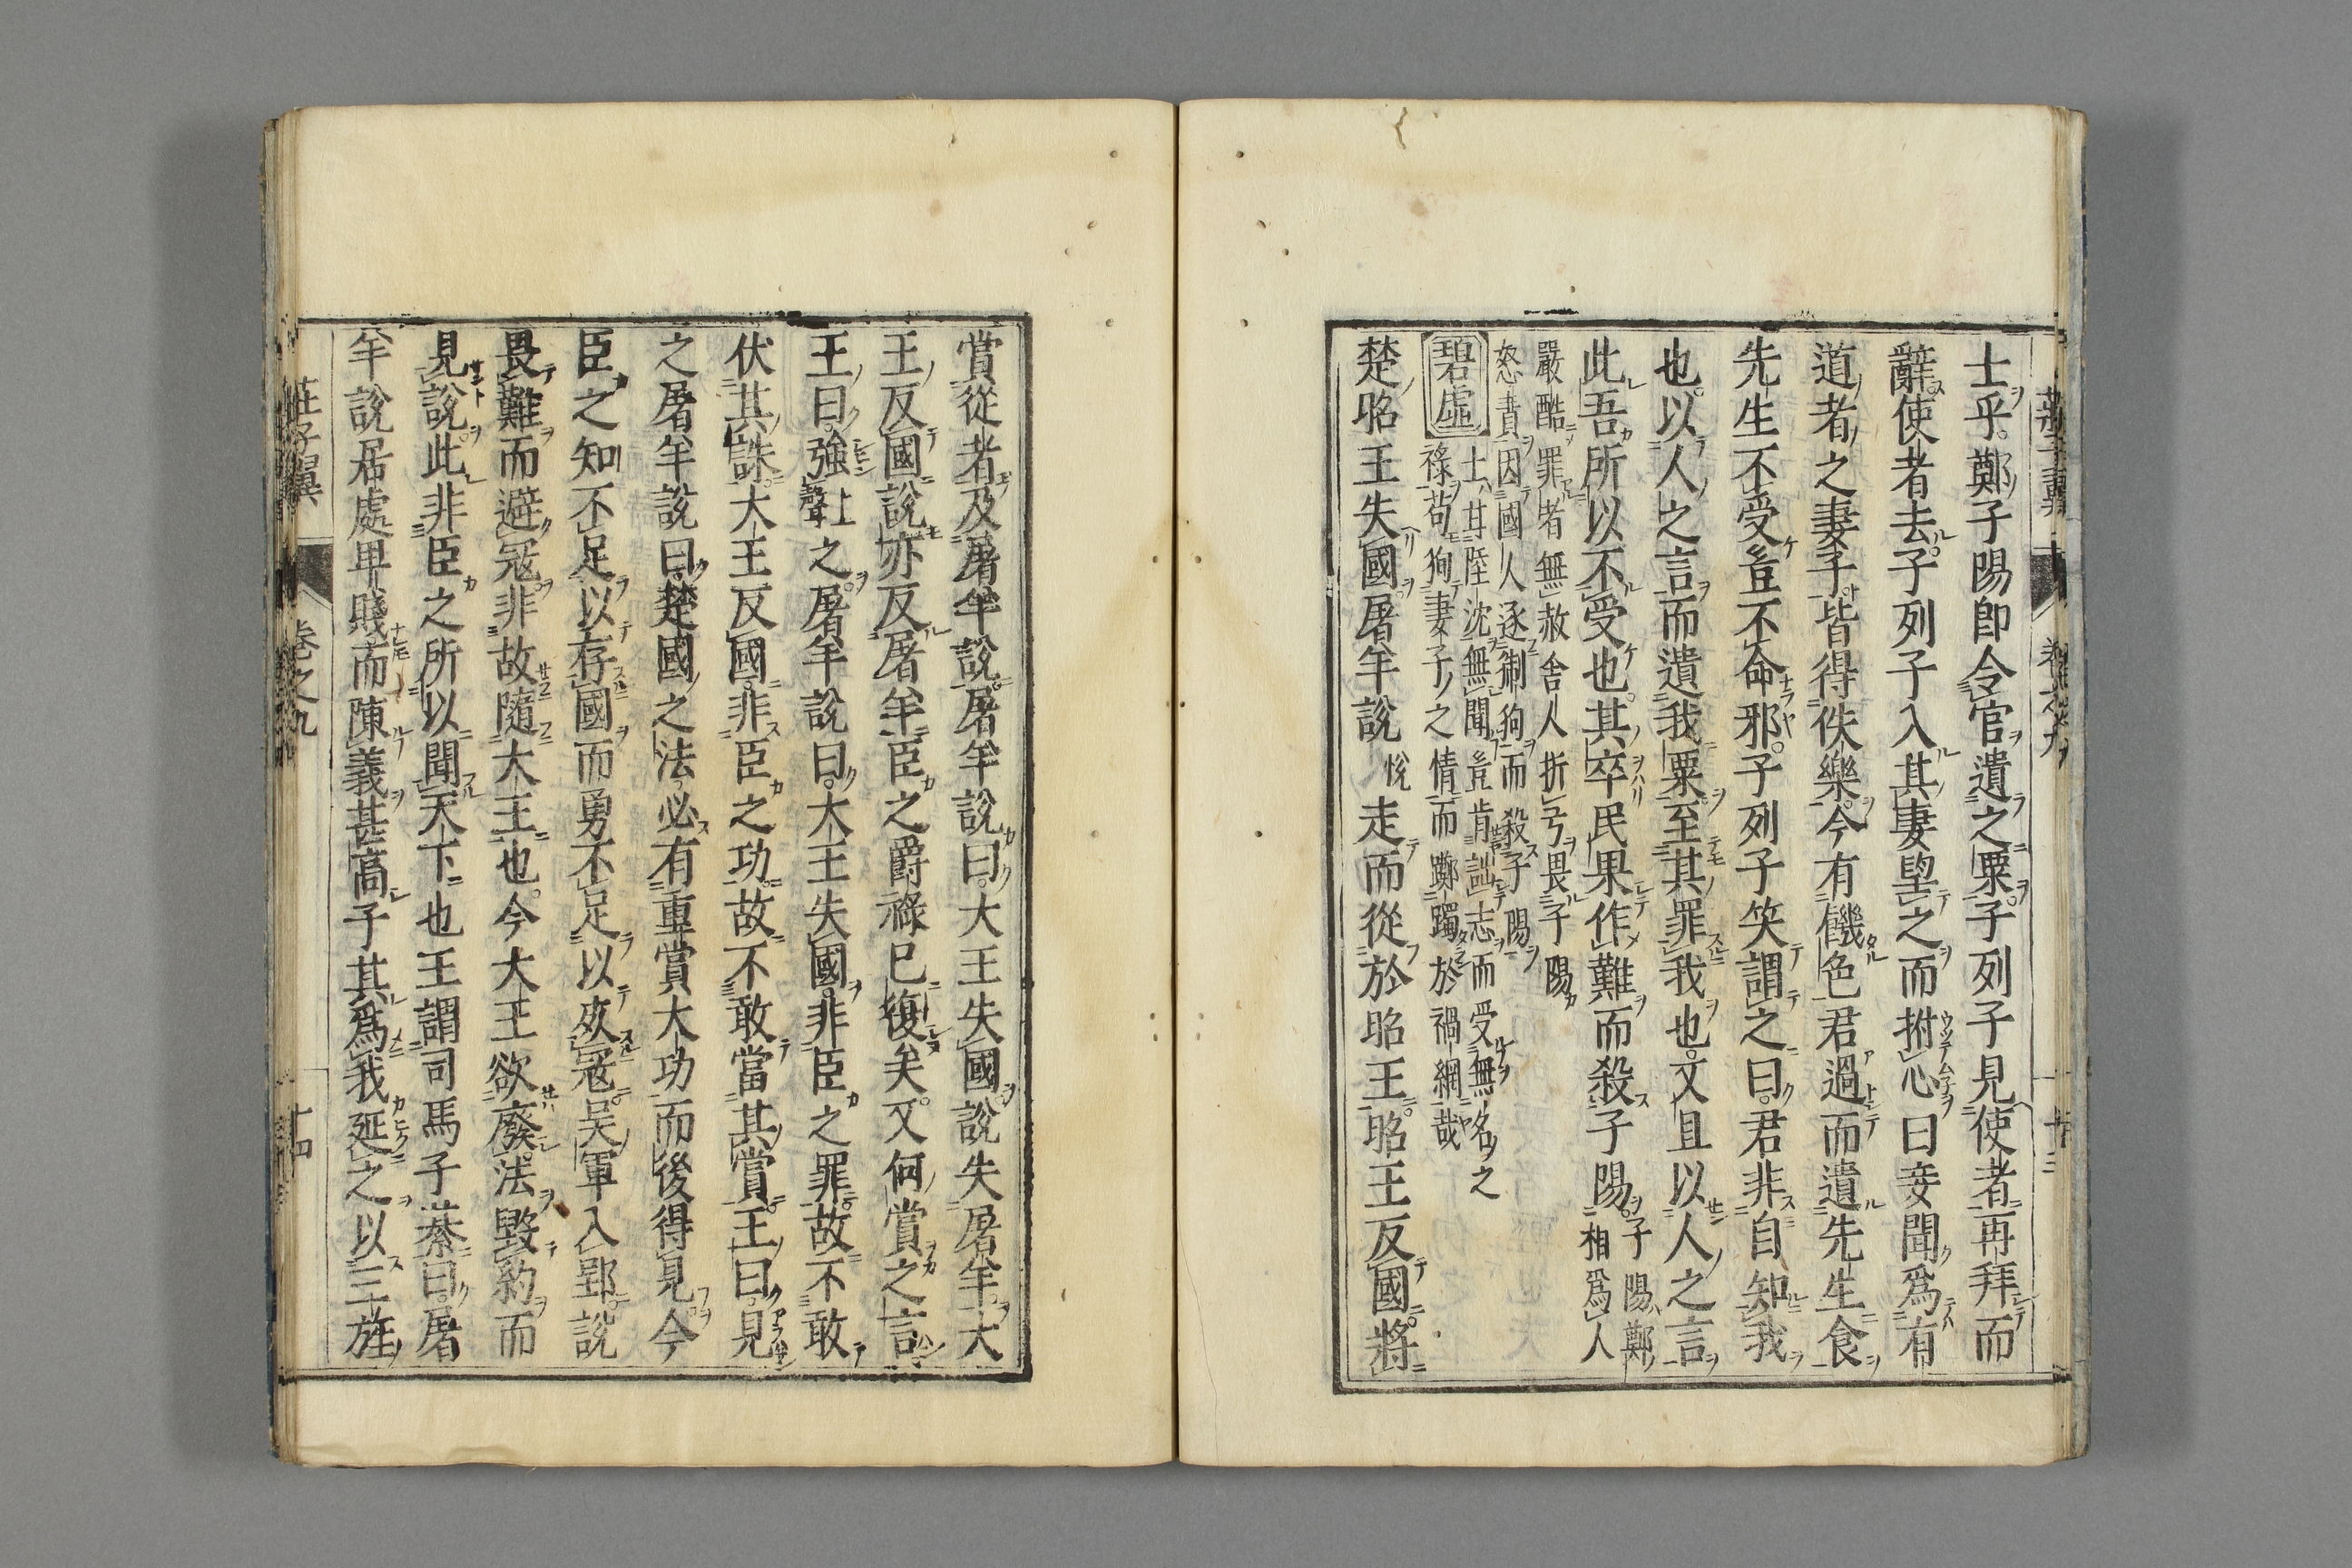 士乎鄭子陽即令官遺之粟子列子見使者再拜而
辭使者去子列子入其妻望之而拊心曰妾聞爲有
道者之妻子皆得佚樂今有饑色君過而遺先生食
先生不受豈不命邪子列子笑謂之曰君非自知我
也以人之言而遺我粟至其罪我也又且以人之言
此吾所以不受也其卒民果作難而殺子陽子陽鄭相爲人
嚴酷罪者無赦舍人折弓畏子陽
怒責因國人逐猘狗而殺子陽
碧虛
士甘陸沈無聞豈肯詘志而受無名之
祿苟狥妻子之情而躑躅於禍網哉
楚昭王失國屠羊說悅走而從於昭王昭王反國將
賞從者及屠羊說屠羊說曰大王失國說失屠羊大
王反國說亦反屠羊臣之爵祿已復矣又何賞之言
王曰強上聲之屠羊說曰大王失國非臣之罪故不敢
伏其誅大王反國非臣之功故不敢當其賞王曰見
之屠羊說曰楚國之法必有重賞大功而後得見今
臣之知不足以存國而勇不足以死寇吳軍入郢說
畏難而避寇非故隨大王也今大王欲廢法毀約而
見說此非臣之所以聞天下也王謂司馬子綦曰屠
羊說居處卑賤而陳義甚高子其爲我延之以三旌
莊子翼
卷之九
十四